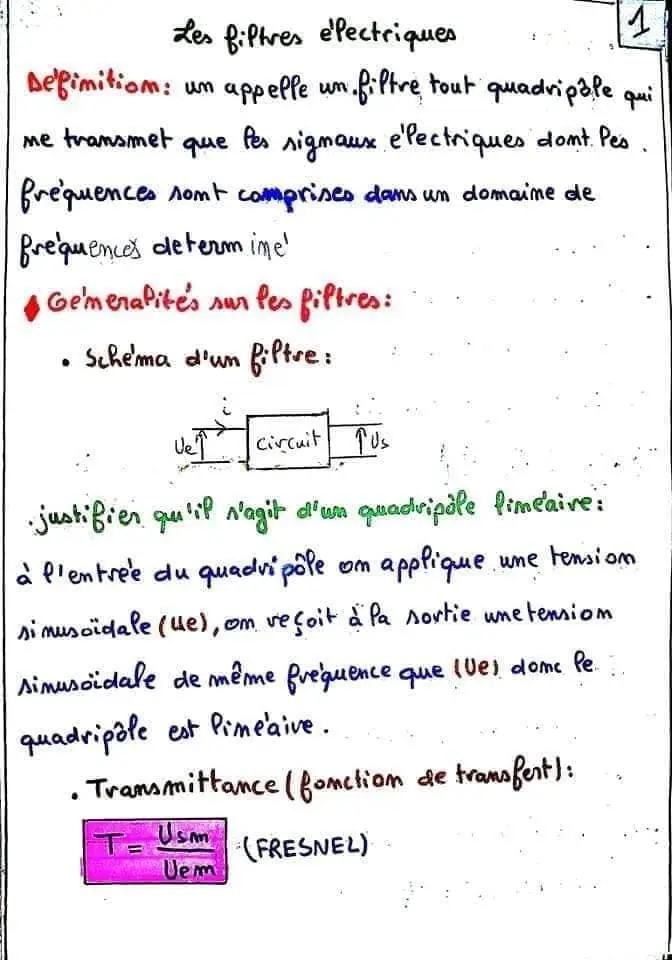 1
Les filtres électriques
Définition: un appelle un filtre tout quadripôle qui
ne transmet que les signaux électriques dont les
fréquences sont comprises dans un domaine de
fréquences déterminé
Généralités sur les filtres:
• Schéma d'un filtre:
i
Ue circuit Us
. justifier qu'il s'agit d'un quadripôle linéaire:
à l'entrée du quadripôle on applique une tension
sinusoïdale (ue), on reçoit à la sortie une tension
sinusoïdale de même fréquence que (Ue) donc le
quadripôle est linéaire.
• Transmittance (fonction de transfert):
T = Usm / Uem (FRESNEL)